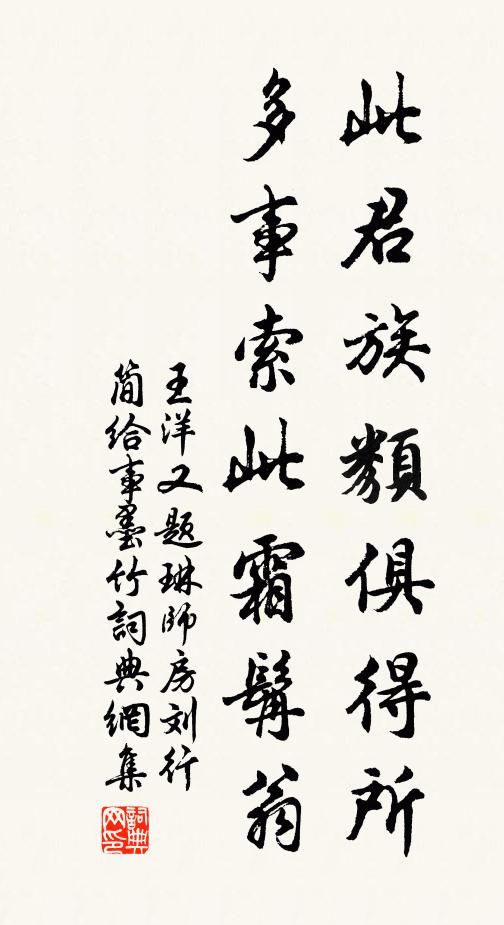 此君族類俱得所
多事索此霜髯翁
王洋又題琳師房刘行
簡給事墨竹詞典網集
詞典网印